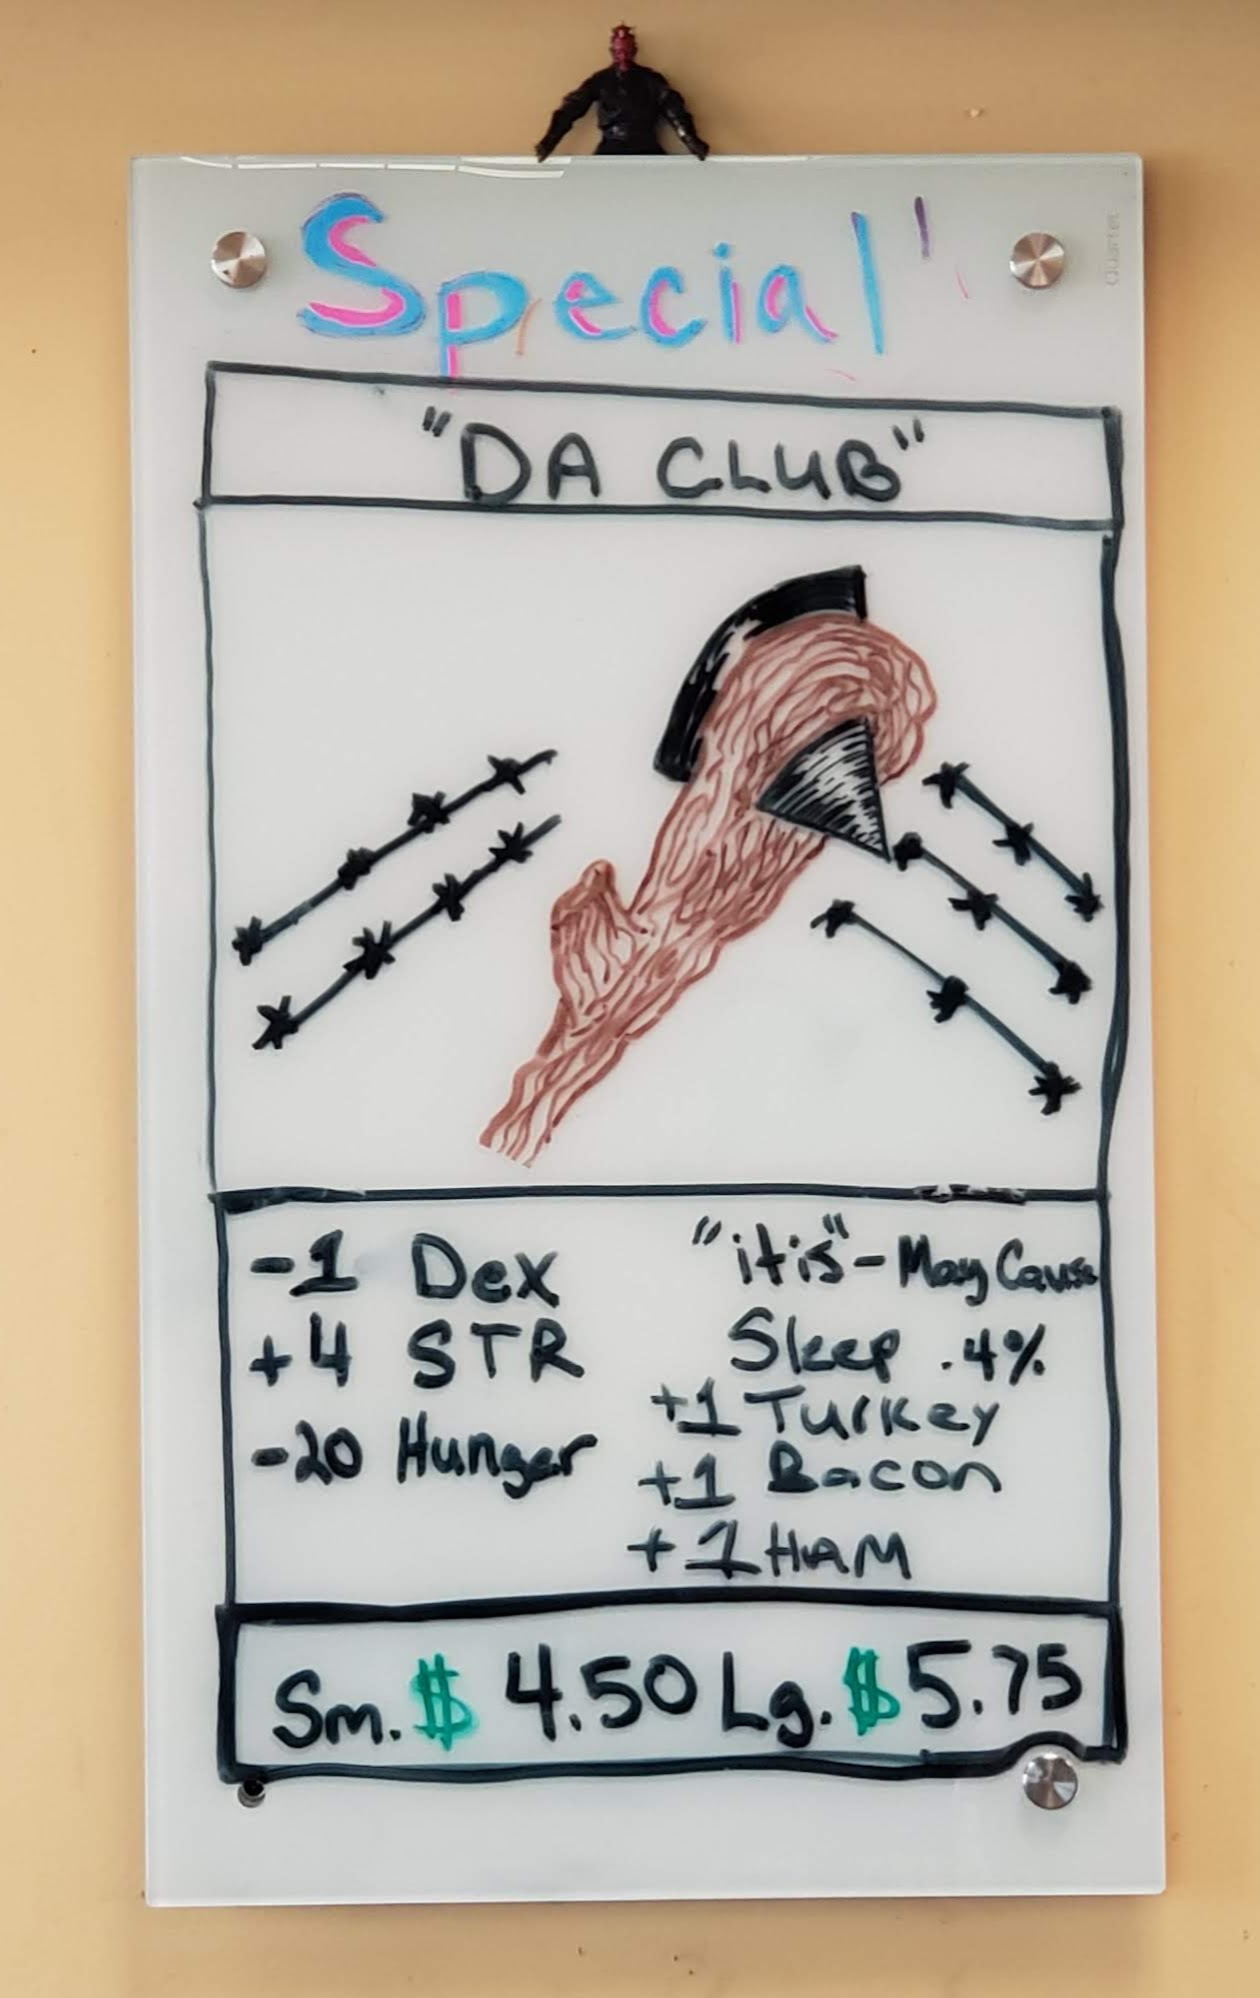 Special
"DA CLUB"
-1 Dex
+4 STR
-20 Hunger
"itis" - May Cause
Sleep .4%
+1 Turkey
+1 Bacon
+1 HAM
Sm. $ 4.50 Lg. $5.75
Quartet